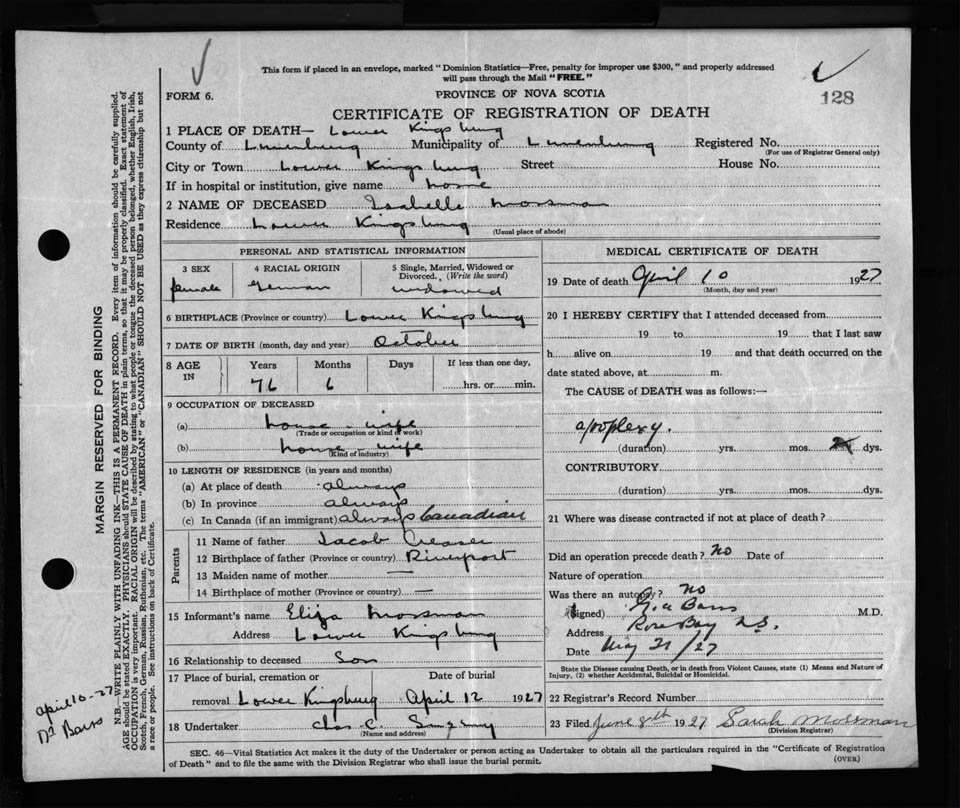 This form if placed in an envelope, marked "Dominion Statistics—Free, penalty for improper use $300," and properly addressed
will pass through the Mail "FREE."
FORM 6.
PROVINCE OF NOVA SCOTIA
128
CERTIFICATE OF REGISTRATION OF DEATH
1 PLACE OF DEATH— Lower Kingsburg
County of Lunenburg Municipality of Lunenburg Registered No.
(For use of Registrar General only)
City or Town Lower Kingsburg Street House No.
If in hospital or institution, give name home
2 NAME OF DECEASED Isabelle Mossman
Residence Lower Kingsburg
(Usual place of abode)
PERSONAL AND STATISTICAL INFORMATION
3 SEX 4 RACIAL ORIGIN 5 Single, Married, Widowed or
Divorced., (Write the word)
female German widowed
6 BIRTHPLACE (Province or country) Lower Kingsburg
7 DATE OF BIRTH (month, day and year) October
8 AGE IN Years Months Days If less than one day,
76 6 hrs. or min.
9 OCCUPATION OF DECEASED
(a) house-wife
(Trade or occupation or kind of work)
(b) house wife
(Kind of industry)
10 LENGTH OF RESIDENCE (in years and months)
(a) At place of death always
(b) In province always
(c) In Canada (if an immigrant) always Canadian
Parents
11 Name of father Jacob Creaser
12 Birthplace of father (Province or country) Riverport
13 Maiden name of mother —
14 Birthplace of mother (Province or country) —
15 Informant's name Eliza Mossman
Address Lower Kingsburg
16 Relationship to deceased Son
17 Place of burial, cremation or Date of burial
removal Lower Kingsburg April 12 1927
18 Undertaker Chas C.
(Name and address)
MEDICAL CERTIFICATE OF DEATH
19 Date of death April 10 1927
(Month, day and year)
20 I HEREBY CERTIFY that I attended deceased from
19 to 19 that I last saw
h alive on 19 and that death occurred on the
date stated above, at m.
The CAUSE of DEATH was as follows:—
apoplexy.
(duration) yrs. mos. dys.
CONTRIBUTORY
(duration) yrs. mos. dys.
21 Where was disease contracted if not at place of death?
Did an operation precede death? no Date of
Nature of operation
Was there an autopsy? no
(Signed) M.D.
Address Rose Bay N.S.
Date May 21/27
State the Disease causing Death, or in death from Violent Causes, state (1) Means and Nature of
Injury, (2) whether Accidental, Suicidal or Homicidal.
22 Registrar's Record Number
23 Filed June 8th 1927 Sarah Mossman
(Division Registrar)
SEC. 46—Vital Statistics Act makes it the duty of the Undertaker or person acting as Undertaker to obtain all the particulars required in the "Certificate of Registration
of Death" and to file the same with the Division Registrar who shall issue the burial permit.
(OVER)
MARGIN RESERVED FOR BINDING
N.B.—WRITE PLAINLY WITH UNFADING INK—THIS IS A PERMANENT RECORD. Every item of information should be carefully supplied.
AGE should be stated EXACTLY. PHYSICIANS should STATE CAUSE OF DEATH in plain terms, so that it may be properly classified. Exact statement of
OCCUPATION is very important. RACIAL ORIGIN will be described by stating to what people or tongue the deceased person belonged, whether English, Irish,
Scotch, French, German, Russian, Ruthenian, etc. The terms "AMERICAN" or "CANADIAN" SHOULD NOT BE USED as they express citizenship but not
a race or people. See instructions on back of Certificate.
April 10-27
Dr Bars